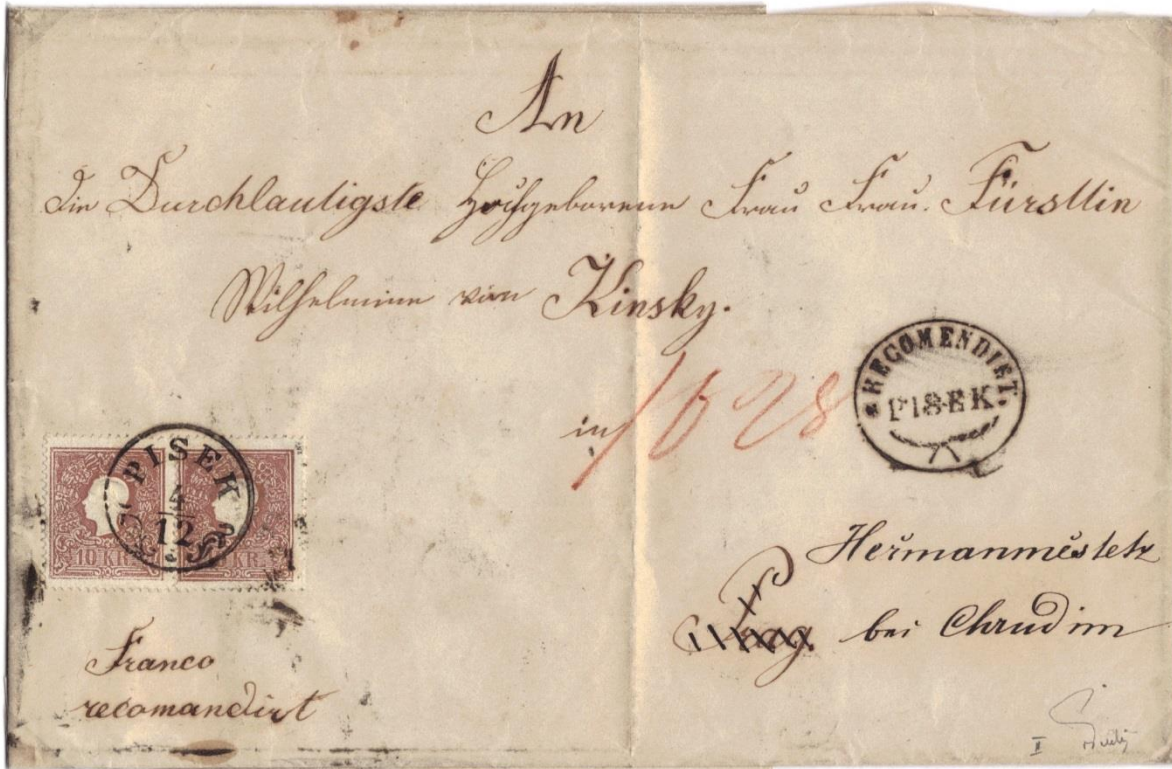 An
die Durchlautigste Hochgeborene Frau Frau. Fürstin
Wilhelmine von Kinsky.
RECOMENDIRT.
PISEK.
in
1628
PISEK
4
12
10 KR.
KR.
Heřmanměstetz
Prag. bei Chrudim
Franco
recomandirt
II